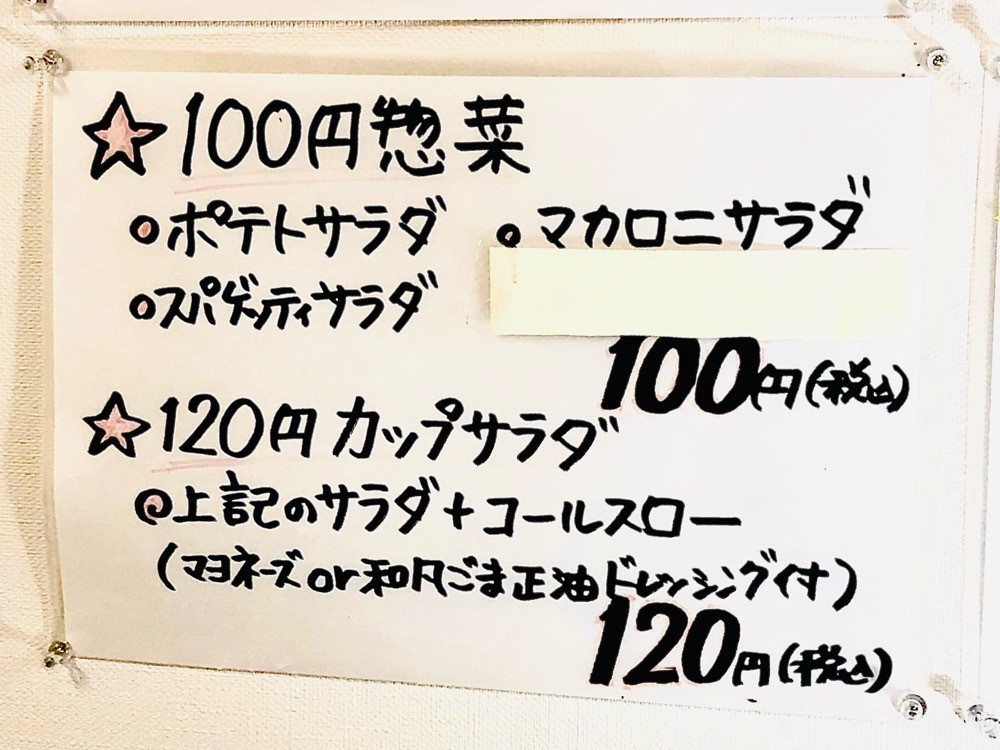 ☆100円惣菜
○ポテトサラダ ○マカロニサラダ
○スパゲッティサラダ
100円(税込)
☆120円カップサラダ
◎上記のサラダ+コールスロー
(マヨネーズor和風ごま正油ドレッシング付す)
120円(税込)